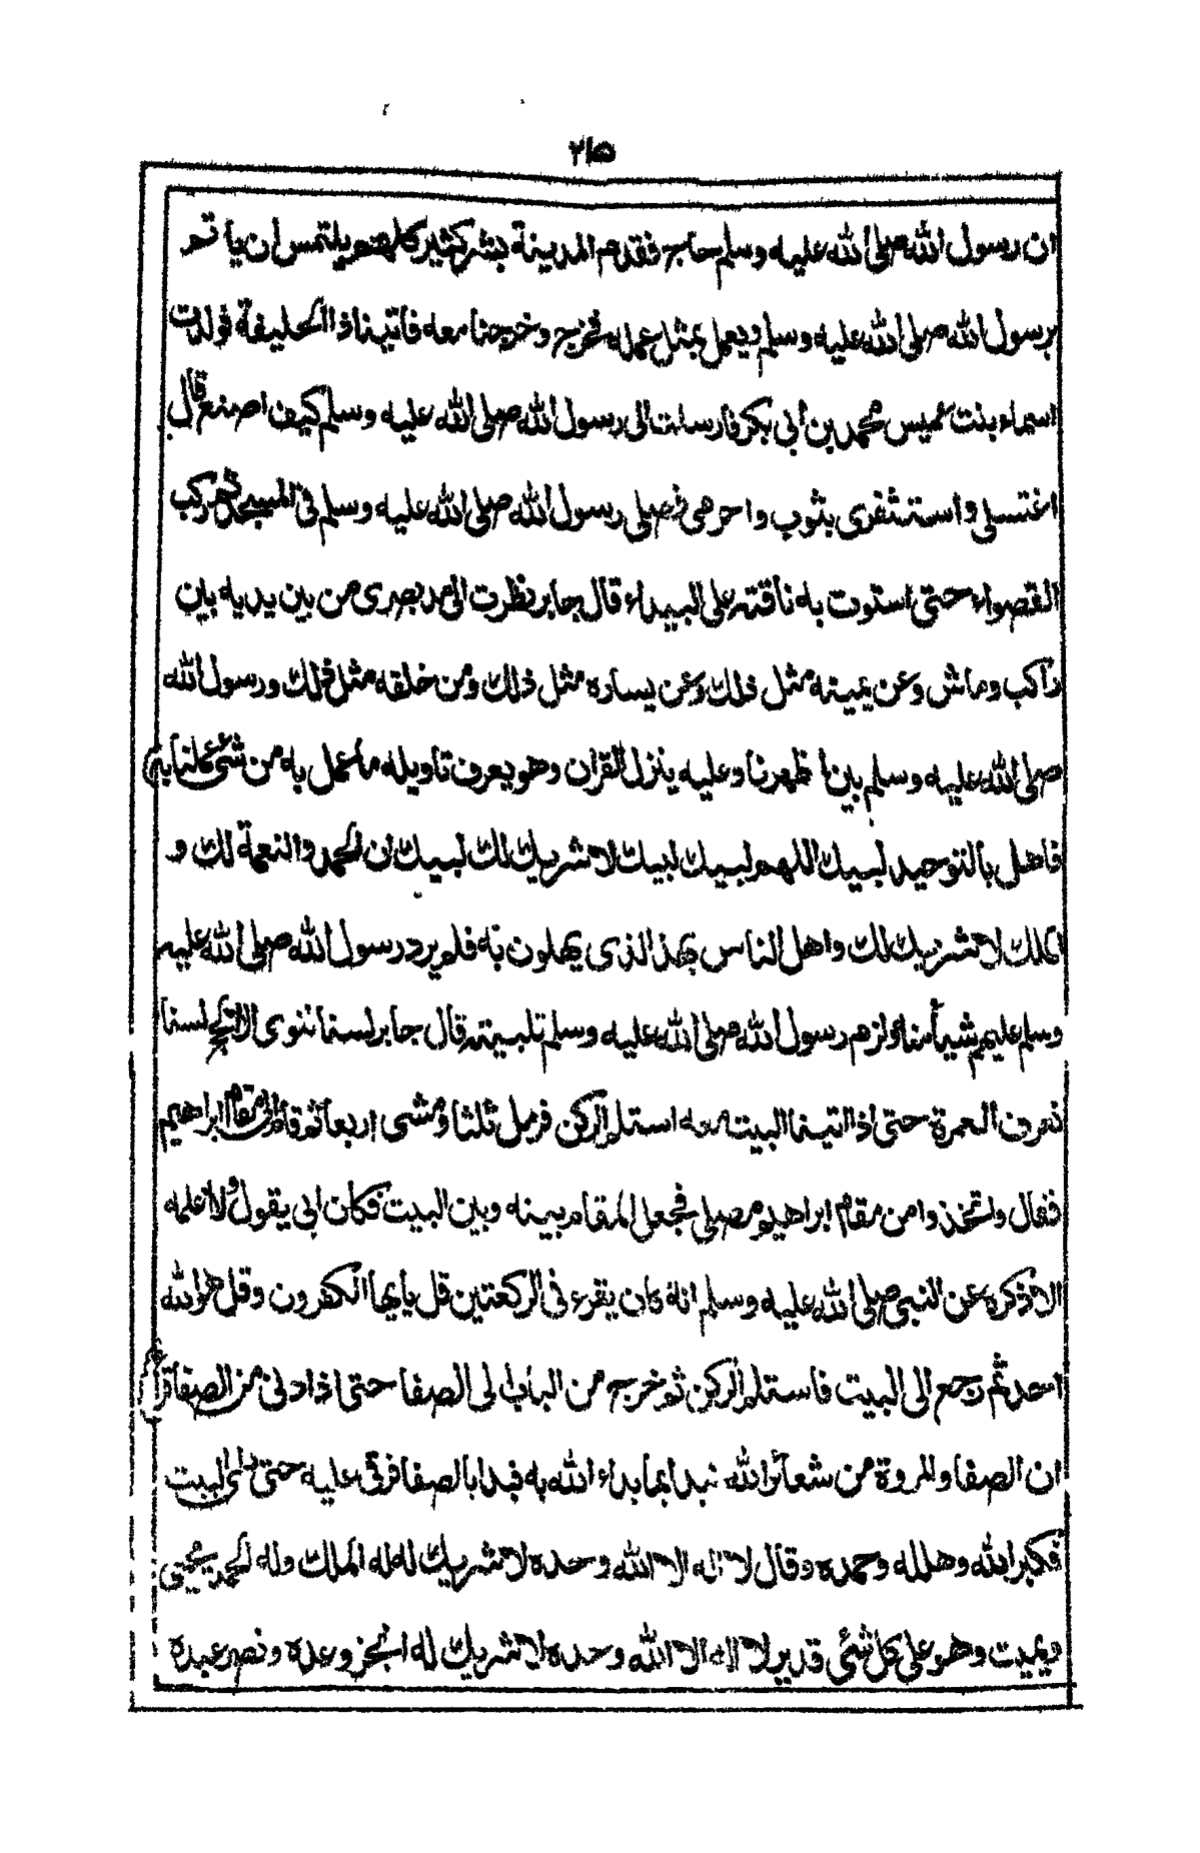 ٢١٥
ان رسول الله صلى الله عليه وسلم حاج فقدم المدينة بشر كثير كلهم يلتمس ان ياتم
برسول الله صلى الله عليه وسلم ويعمل بمثل عمله فخرج وخرجنا معه فاتينا ذا الحليفة فولدت
اسماء بنت عميس محمد بن ابي بكر فارسلت الى رسول الله صلى الله عليه وسلم كيف اصنع قال
اغتسلى واستثفرى بثوب واحرمى فصلى رسول الله صلى الله عليه وسلم فى المسجد ثم ركب
القصواء حتى استوت به ناقته على البيداء قال جابر نظرت الى مد بصرى من بين يديه بين
راكب وماش وعن يمينه مثل ذلك وعن يساره مثل ذلك ومن خلفه مثل ذلك ورسول الله
صلى الله عليه وسلم بين اظهرنا وعليه ينزل القران وهو يعرف تاويله ما عمل به من شئ عملنا به
فاهل بالتوحيد لبيك اللهم لبيك لبيك لا شريك لك لبيك ان الحمد والنعمة لك و
الملك لا شريك لك واهل الناس بهذ الذى يهلون به فلم يرد رسول الله صلى الله عليه
وسلم عليهم شيأ منه ولزم رسول الله صلى الله عليه وسلم تلبيته قال جابر لسنا ننوى الا الحج لسنا
نعرف العمرة حتى اذا اتينا البيت معه استلم الركن فرمل ثلثا ومشى اربعا ثم قام الى مقام ابراهيم
فقال واتخذوا من مقام ابراهيم مصلى فجعل المقام بينه وبين البيت فكان ابى يقول ولا اعلمه
الا ذكره عن النبى صلى الله عليه وسلم انه كان يقرء فى الركعتين قل يايها الكفرون وقل هو الله
احد ثم رجع الى البيت فاستلم الركن ثم خرج من الباب الى الصفا حتى اذا دنى من الصفا قرأ
ان الصفا والمروة من شعائر الله نبدا بما بداء الله به فبدا بالصفا فرقى عليه حتى راى البيت
فكبر الله وهلله وحمده وقال لا اله الا الله وحده لا شريك له له الملك وله الحمد يحيى
ويميت وهو على كل شئ قدير لا اله الا الله وحده لا شريك له انجز وعده ونصر عبده